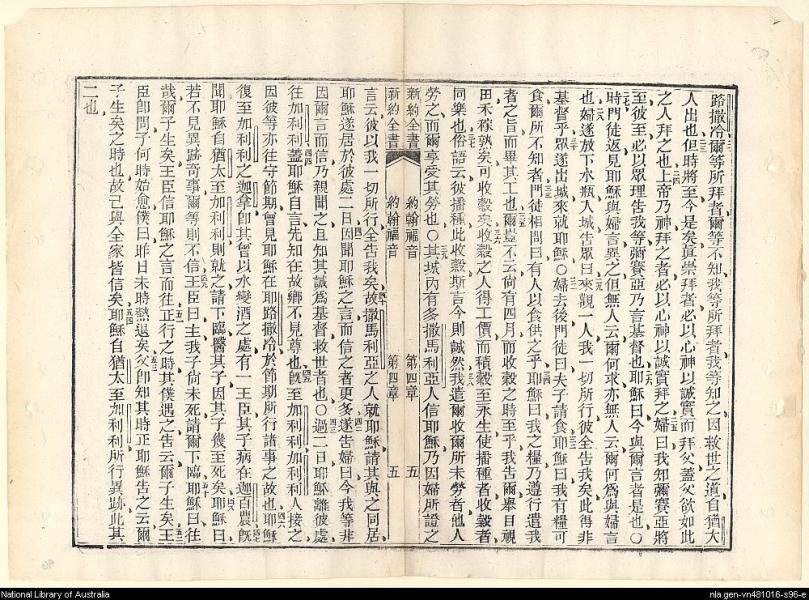 路撒冷爾等所拜者爾等不知我等所拜者我等知之因救世之道自猶太
人出也但時將至今是矣眞崇拜者必以心神以誠實而拜父蓋父欲如此
之人拜之也上帝乃神拜之者必以心神以誠實拜之婦曰我知彌賽亞將
至彼至必以眾理告我等彌賽亞乃言基督也耶穌曰今與爾言者是也〇
時門徒返見耶穌與婦言異之但無人云爾何求亦無人云爾何爲與婦言
也婦遂放下水瓶入城告眾曰來觀一人我一切所行彼全告我矣此得非
基督乎眾遂出城來就耶穌〇婦去後門徒曰夫子請食耶穌曰我有糧可
食爾所不知者門徒相問曰有人以食供之乎耶穌曰我之糧乃遵行遣我
者之旨而畢其工也爾豈不云尚有四月而收穀之時至乎我告爾舉目視
田禾稼熟矣可收穀矣收穀之人得工價而積穀至永生使播種者收穀者
同樂也俗語云彼播種此收穀斯言今則誠然我遣爾收爾所未勞者他人
勞之而爾享受其勞也〇其城內有多撒馬利亞人信耶穌乃因婦所證之
新約全書 約翰福音 第四章 五
新約全書 約翰福音 第四章 五
言云彼以我一切所行全告我矣故撒馬利亞之人就耶穌請其與之同居
耶穌遂居於彼處二日因聞耶穌之言而信之者更多遂告婦曰今我等非
因爾言而信乃親聞之且知其誠爲基督救世者也〇過二日耶穌離彼處
往加利利蓋耶穌自言先知在故鄉不見尊也旣至加利利加利利人接之
因彼等亦往守節期曾見耶穌在耶路撒冷於節期所行諸事之故也耶穌
復至加利利之迦拿卽其曾以水變酒之處有一王臣其子病在迦百農旣
聞耶穌自猶太至加利利則就之請下臨醫其子因其子幾至死矣耶穌曰
若不見異跡奇事爾等則不信王臣曰主我子尚未死請爾下臨耶穌曰往
哉爾子生矣王臣信耶穌之言而往正行之時其僕遇之告云爾子生矣王
臣卽問子何時始愈僕曰昨日未時熱退矣父卽知其時正耶穌告之云爾
子生矣之時也故己與全家皆信矣耶穌自猶太至加利利所行異跡此其
二也
National Library of Australia
nla.gen-vn481016-s96-e